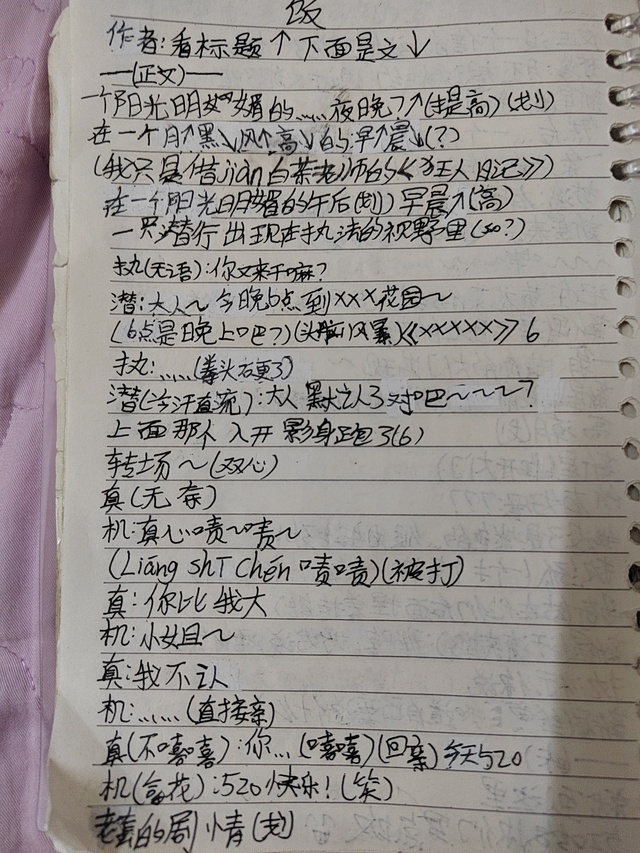 饭
作者:看标题↑下面是文↓
—(正文)—
一个阳光明媚的……夜晚了↑(提高)(划)
在一个月↑黑↘风↑高↘的早↑晨↓(?)
(我只是借jiàn白茶老师的《狂人日记》)
在一个阳光明媚的午后(划)早晨↑(高)
一只潜行出现在执法的视野里(so?)
执(无语):你又来干嘛?
潜:大人~今晚6点到×××花园~
(6点是晚上吧?)(头脑风暴)《×××××》6
执:……(拳头石更了)
潜(冷汗直流):大人默认了对吧~~~?
上面那个入开影身跑了(6)
转场~(双心)
真(无奈)
机:真心啧~啧~
(Liáng shī chén 啧啧)(被打)
真:你比我大
机:小姐~
真:我不认
机:……(直接亲)
真(不嘻嘻):你…(嘻嘻)(回亲)今天520
机(拿花):520快乐!(笑)
老套的剧情(划)